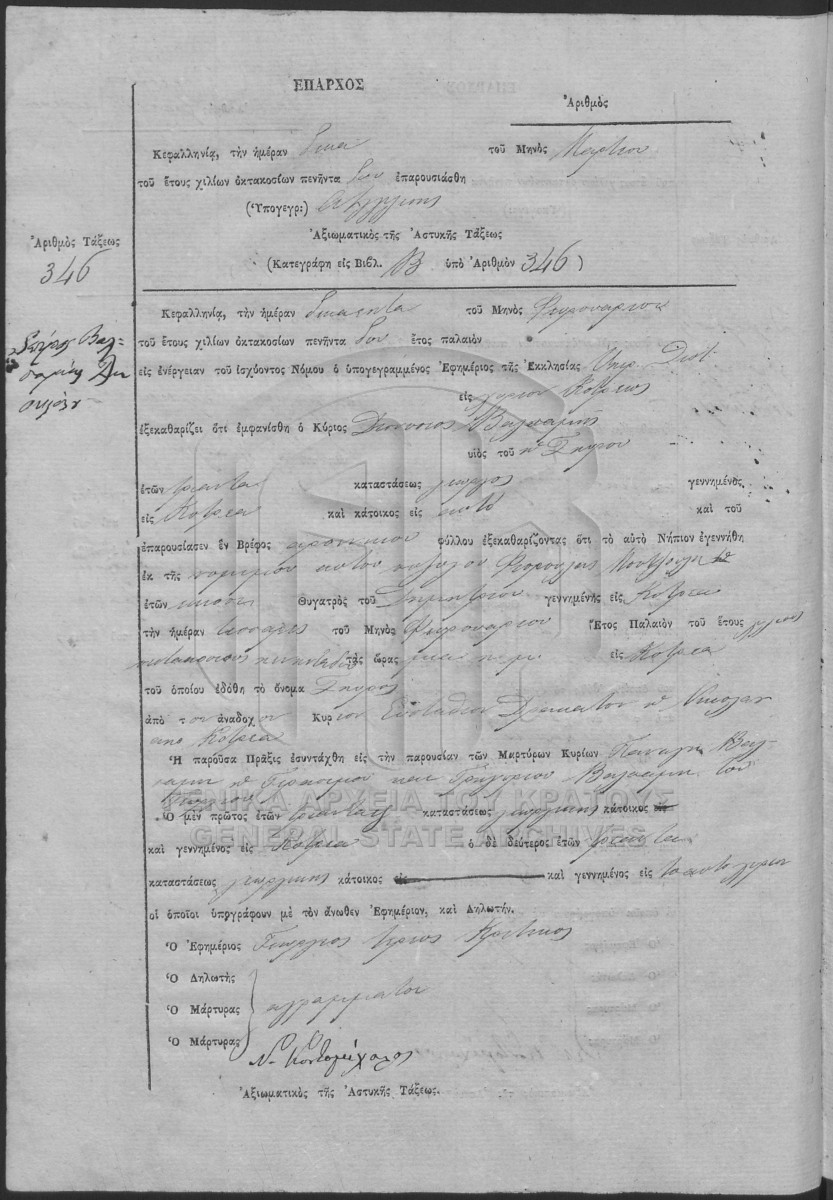 ΕΠΑΡΧΟΣ
Ἀριθμὸς
Κεφαλληνίᾳ, τὴν ἡμέραν δεκα τοῦ Μηνὸς Μαρτιου
τοῦ ἔτους χιλίων ὀκτακοσίων πενῆντα δυο ἐπαρουσιάσθη
(Ὑπογεγρ:)
Ἀξιωματικὸς τῆς Ἀστυκῆς Τάξεως
(Κατεγράφη εἰς Βιβλ. Β ὑπὸ Ἀριθμὸν 346)
Ἀριθμὸς Τάξεως
346
Σπύρος Βαλ-
σαμης Διο
νυσίου
Κεφαλληνίᾳ, τὴν ἡμέραν τοῦ Μηνὸς Φευρουαριου
τοῦ ἔτους χιλίων ὀκτακοσίων πενῆντα δυο ἔτος παλαιὸν
εἰς ἐνέργειαν τοῦ ἰσχύοντος Νόμου ὁ ὑπογεγραμμένος Ἐφημέριος τῆς Ἐκκλησίας
εἰς χωριον Κοτρεα
ἐξεκαθαρίζει ὅτι ἐμφανίσθη ὁ Κύριος Διονυσιος Βαλσαμης
υἱὸς τοῦ Σπυρου
ἐτῶν τριαντα καταστάσεως γεωργος γεννημένος
εἰς Κοτρεα καὶ κάτοικος εἰς αυτο καὶ τοῦ
ἐπαρουσίασεν ἓν Βρέφος αρσενικου φύλλου ἐξεκαθαρίζοντας ὅτι τὸ αὐτὸ Νήπιον ἐγεννήθη
ἐκ τῆς νομιμου αυτου συζυγου
ἐτῶν εικοσι Θυγατρὸς τοῦ Δημητριου γεννημένης εἰς Κοτρεα
τὴν ἡμέραν τεσσαρες τοῦ Μηνὸς Φευρουαριου Ἔτος Παλαιὸν τοῦ ἔτους χιλιους
οκτακοσιους πενηνταδυο τὰς ὥρας μια π.μ. εἰς Κοτρεα
τοῦ ὁποίου ἐδόθη τὸ ὄνομα Σπυρος
ἀπὸ τον ἀναδοχον Κυριον Ευσταθιον Νικολαου
απο Κοτρεα
Ἡ παροῦσα Πρᾶξις ἐσυντάχθη εἰς τὴν παρουσίαν τῶν Μαρτύρων Κυρίων Παναγη Βαλ-
σαμη Γερασιμου και Γρηγοριου Βαλσαμη του
Ὁ μὲν πρῶτος ἐτῶν τριαντα καταστάσεως γεωργικης κάτοικος
καὶ γεννημένος εἰς Κοτρεα ὁ δὲ δεύτερος ἐτῶν τριαντα
καταστάσεως γεωργικης κάτοικος καὶ γεννημένος εἰς το αυτο χωριον
οἱ ὁποῖοι ὑπογράφουν μὲ τὸν ἄνωθεν Ἐφημέριον, καὶ Δηλωτήν.
Ὁ Ἐφημέριος Γεωργιος Ιερευς Κρητικος
Ὁ Δηλωτὴς
Ὁ Μάρτυρας αγραμματοι
Ὁ Μάρτυρας
Ἀξιωματικὸς τῆς Ἀστυκῆς Τάξεως.
ΓΕΝΙΚΑ ΑΡΧΕΙΑ ΤΟΥ ΚΡΑΤΟΥΣ
GENERAL STATE ARCHIVES